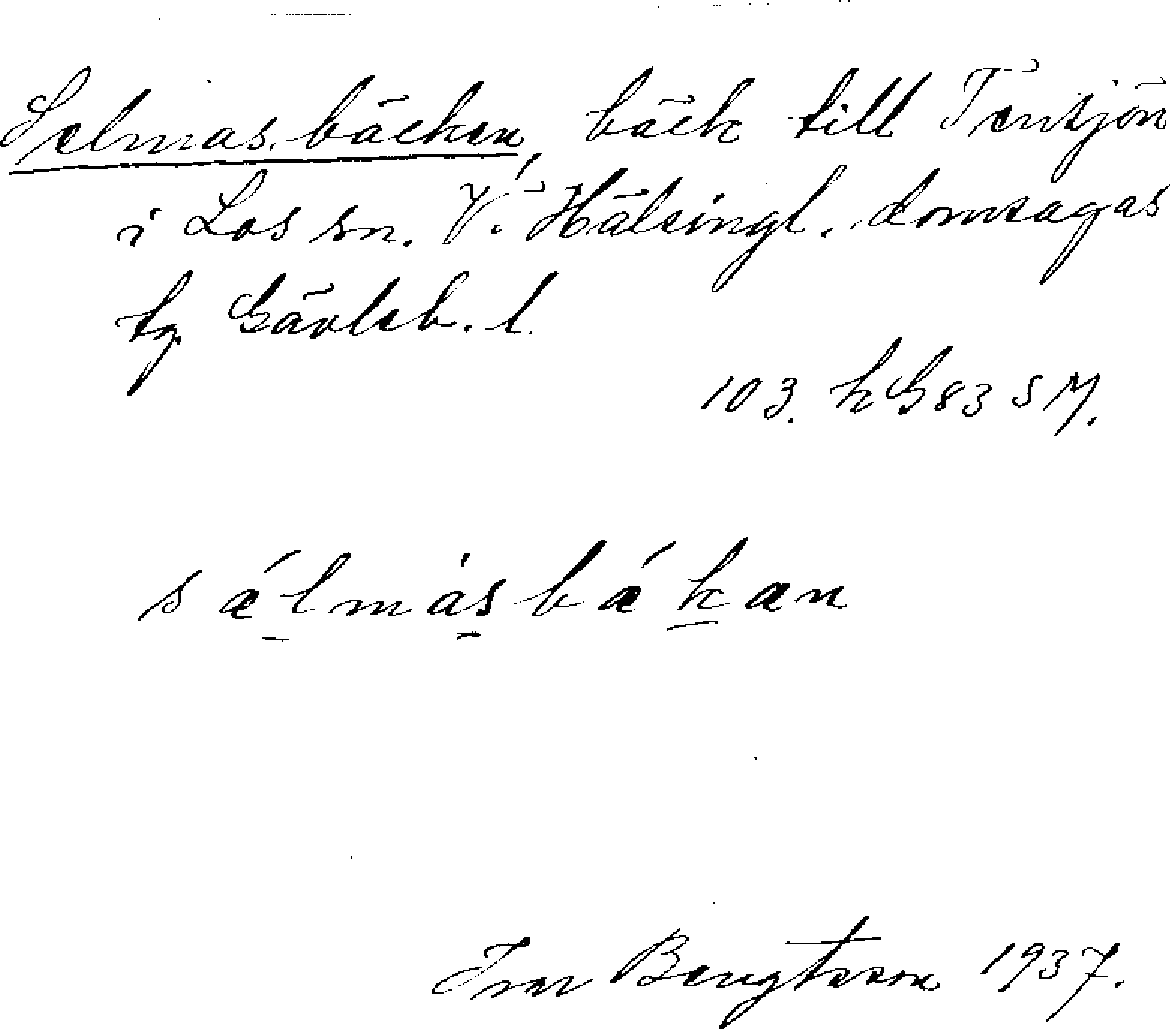 Selmas bäcken, bäck till Tensjön
i Los sn. V. Hälsingl. domsagas
tg Gävleb. l.
103. h G 83 SM.
s ǽ l m à s b ǽ k æ n
Ivar Bengtsson 1937.